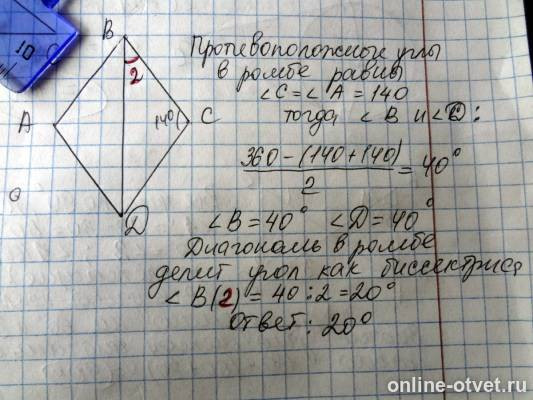 B
2
A
140
C
D
10
Противоположные углы
в ромбе равны
∠C=∠A=140
тогда ∠B и ∠D:
360-(140+140)
2
=40°
∠B=40° ∠D=40°
Диагональ в ромбе
делит угол как биссектриса
∠B(2)=40:2=20°
Ответ: 20°
online-otvet.ru